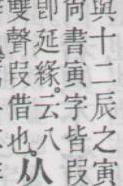 與十二辰之寅
尚書寅字皆叚
卽延緣。云八
雙聲叚借也。从